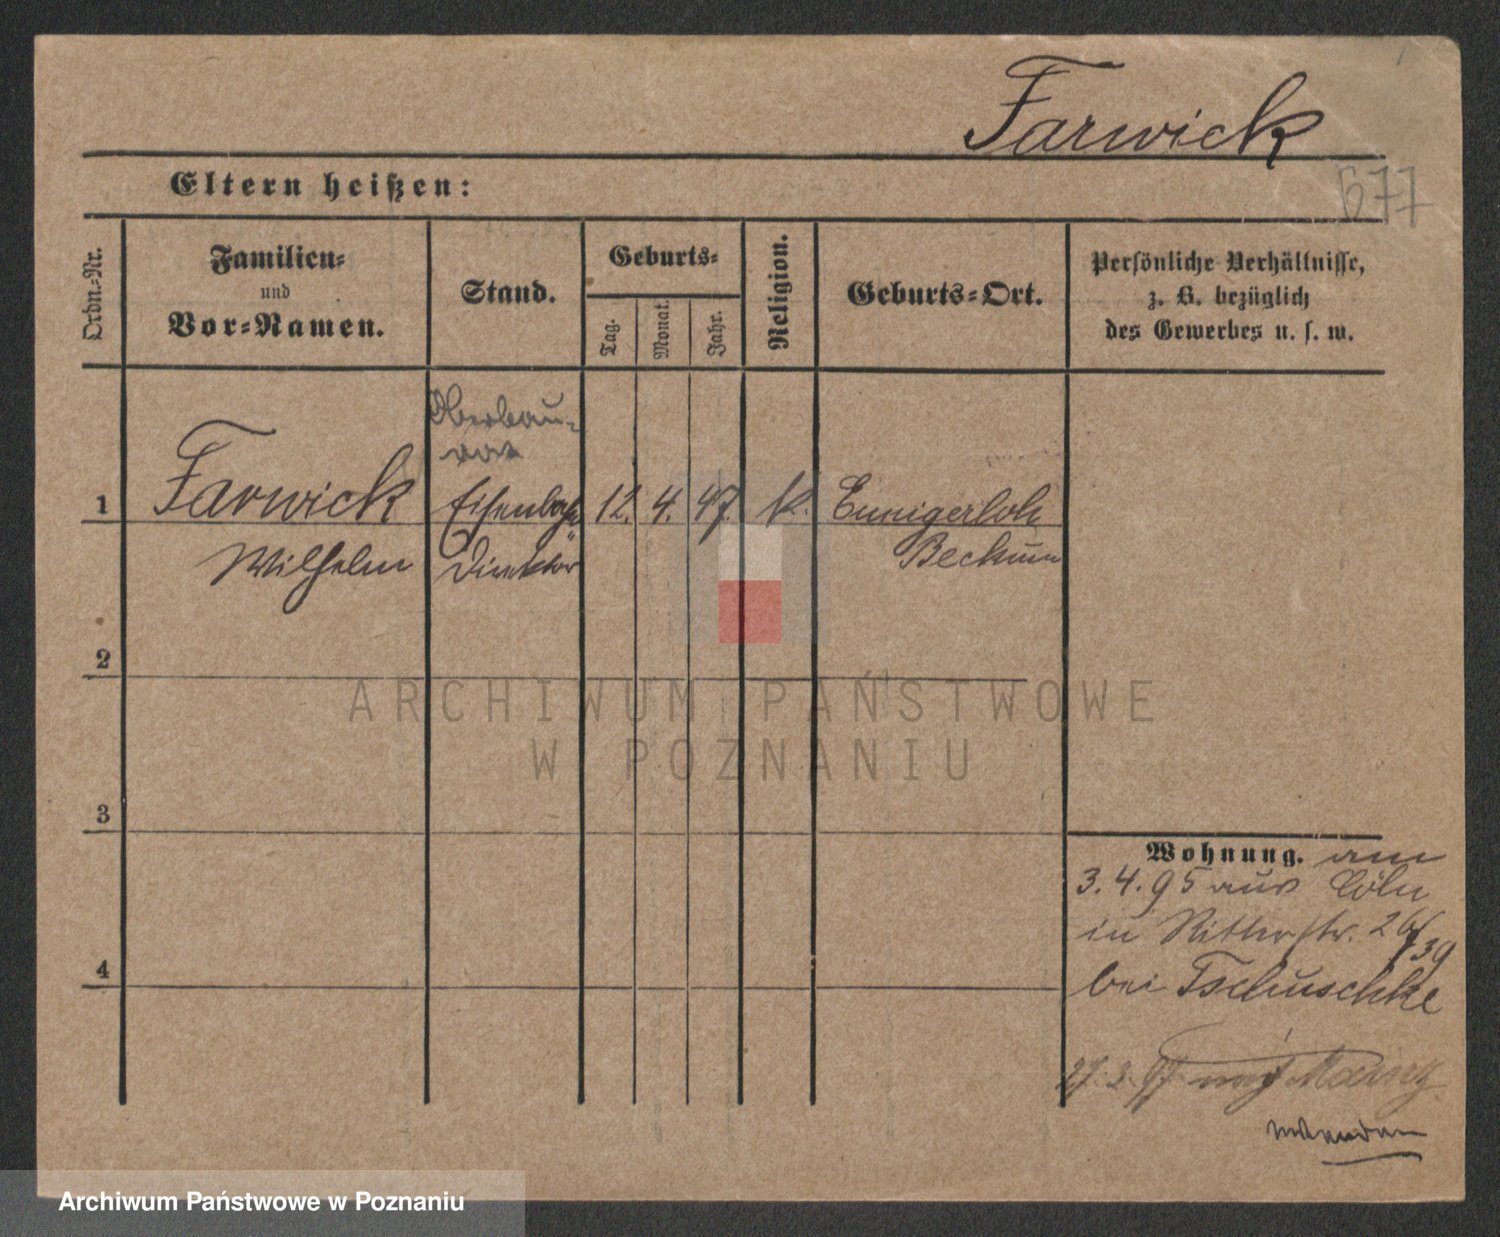 Farwick
Eltern heißen:
677
Ordn.-Nr.
Familien-
und
Vor-Namen.
Stand.
Geburts-
Tag.
Monat.
Jahr.
Religion.
Geburts-Ort.
Persönliche Verhältnisse,
z. B. bezüglich
des Gewerbes u. s. w.
Oberbau-
rat
1 Farwick Eisenbahn 12. 4. 47. k. Ennigerloh
Wilhelm Direktor Beckum
2
3
4
Wohnung. am
3.4.95 aus Cöln
in Ritterstr. 26/39
bei Tschuschke
27.3.97 nach Mainz
ARCHIWUM PAŃSTWOWE
W POZNANIU
Archiwum Państwowe w Poznaniu